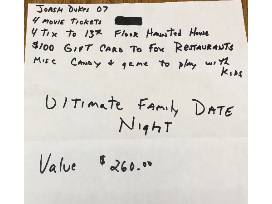 JOASH DUKES 07
4 MOVIE TICKETS
4 TIX TO 13th FLOOR HAUNTED HOUSE
$100 GIFT CARD TO FOX RESTAURANTS
MISC CANDY & GAME TO PLAY WITH
KIDS
ULTIMATE FAMILY DATE
NIGHT
VALUE $260.00